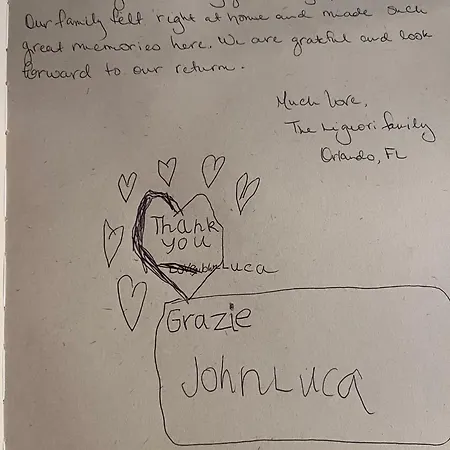 Our family felt right at home and made such
great memories here. We are grateful and look
forward to our return.
Much love,
The Liguori family
Orlando, FL
Thank
you
Luca
Grazie
John Luca